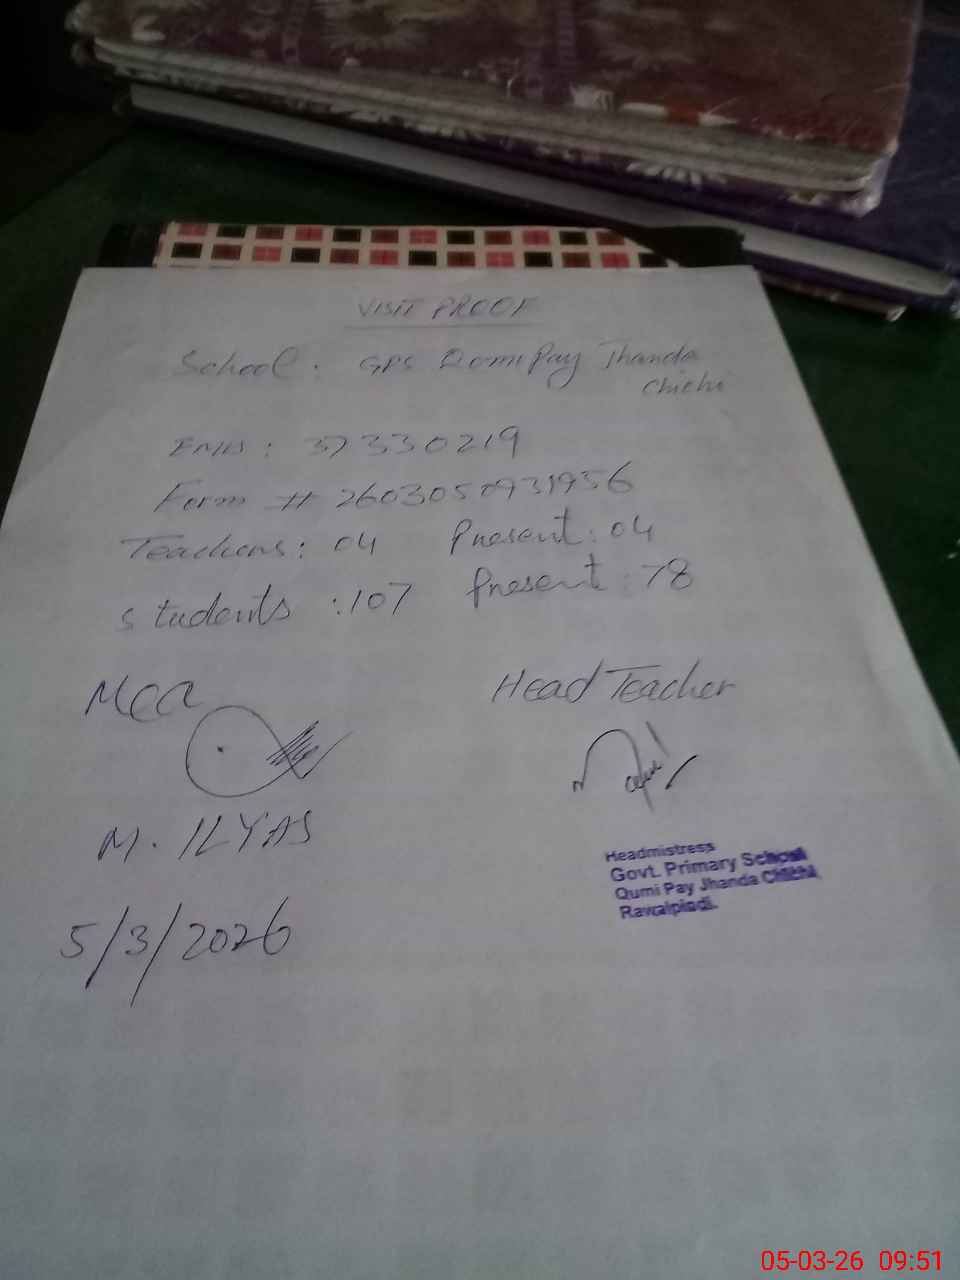 VISIT PROOF
School: GPS Qomi Pay Jhanda
Chichi
EMIS: 37330219
Form # 2603050931956
Teachers: 04 Present: 04
students: 107 Present: 78
MEA
Head Teacher
M. ILYAS
Headmistress
Govt. Primary School
Qumi Pay Jhanda Chichi
Rawalpindi.
5/3/2026
05-03-26 09:51